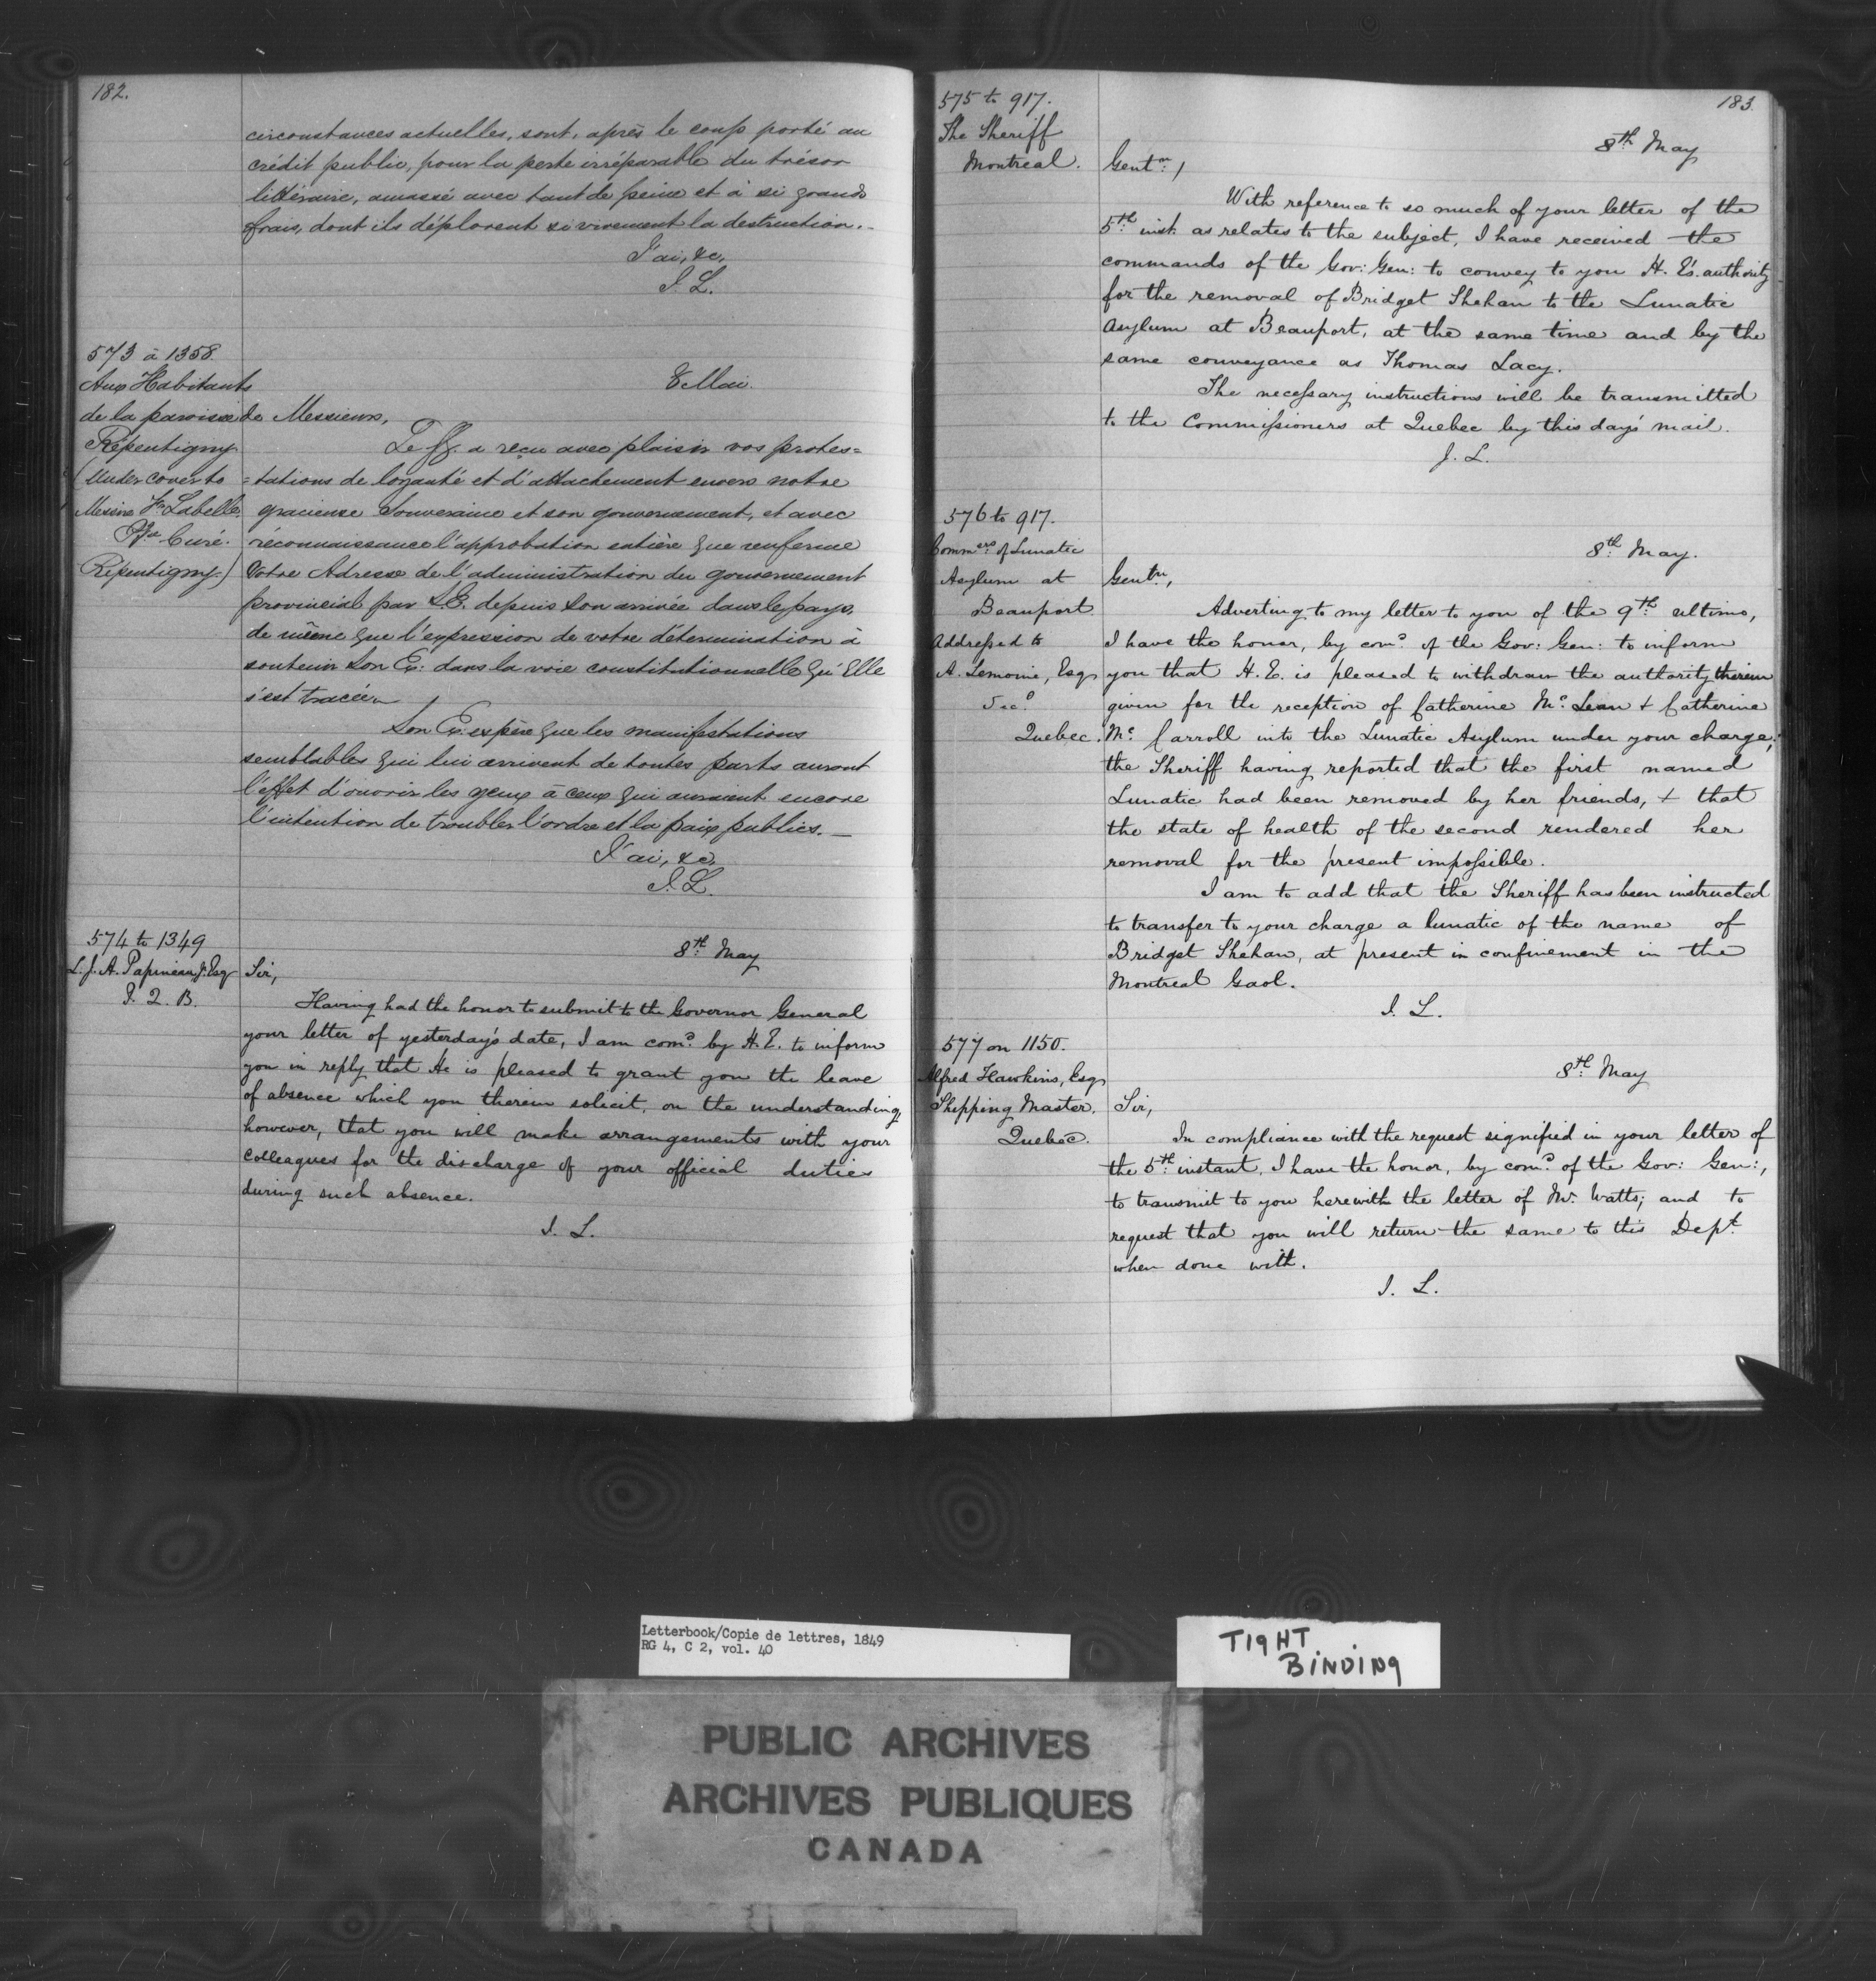 182.
circonstances actuelles, sont, après le coup porté au
crédit public, pour la perte irréparable du trésor
littéraire, amassé avec tant de peine et à si grands
frais, dont ils déplorent si vivement la destruction.—
J'ai, &c,
J. L.
573 à 1358.
Aux Habitants
de la paroisse de
Répentigny
(Under cover to
Messire Fr. Labelle
Ptre Curé.
Répentigny.)
8 Mai.
Messieurs,
Le G. G. a reçu avec plaisir vos protes=
=tations de loyauté et d'attachement envers notre
gracieuse Souveraine et son gouvernement, et avec
reconnaissance l'approbation entière que renferme
Votre Adresse de l'administration du gouvernement
provincial par S. E. depuis son arrivée dans le pays,
de même que l'expression de votre détermination à
soutenir Son Ex: dans la voie constitutionnelle qu'Elle
s'est tracée.
Son Ex: espère que les manifestations
semblables qui lui arrivent de toutes parts auront
l'effet d'ouvrir les yeux à ceux qui auraient encore
l'intention de troubler l'ordre et la paix publics.—
J'ai, &c,
J. L.
574 to 1349
L. J. A. Papineau, Jr. Esq
P. Q. B.
8th May
Sir,
Having had the honor to submit to the Governor General
your letter of yesterday's date, I am comd. by H. E. to inform
you in reply that He is pleased to grant you the leave
of absence which you therein solicit, on the understanding,
however, that you will make arrangements with your
Colleagues for the discharge of your official duties
during such absence.
J. L.
183.
575 to 917.
The Sheriff
Montreal.
8th May
Gentn. /
With reference to so much of your letter of the
5th inst. as relates to the subject, I have received the
commands of the Gov: Gen: to convey to you H. E's. authority
for the removal of Bridget Shehan to the Lunatic
Asylum at Beauport, at the same time and by the
same conveyance as Thomas Lacy.
The necessary instructions will be transmitted
to the Commissioners at Quebec by this day's mail.
J. L.
576 to 917.
Commers of Lunatic
Asylum at
Beauport.
Addressed to
A. Lemoine, Esq
Sec.
Quebec.
8th May.
Gentn,
Adverting to my letter to you of the 9th ultimo,
I have the honor, by comd. of the Gov: Gen: to inform
you that H. E. is pleased to withdraw the authority therein
given for the reception of Catherine Mc. Lean & Catherine
Mc. Carroll into the Lunatic Asylum under your charge;
the Sheriff having reported that the first named
Lunatic had been removed by her friends, & that
the state of health of the second rendered her
removal for the present impossible.
I am to add that the Sheriff has been instructed
to transfer to your charge a lunatic of the name of
Bridget Shehan, at present in confinement in the
Montreal Gaol.
J. L.
577 on 1150.
Alfred Hawkins, Esq
Shipping Master.
Quebec.
8th May
Sir,
In compliance with the request signified in your letter of
the 5th instant, I have the honor, by comd. of the Gov: Gen:,
to transmit to you herewith the letter of Mr. Watts; and to
request that you will return the same to this Dept.
when done with.
J. L.
Letterbook/Copie de lettres, 1849
RG 4, C 2, vol. 40
TIGHT
BINDING
PUBLIC ARCHIVES
ARCHIVES PUBLIQUES
CANADA